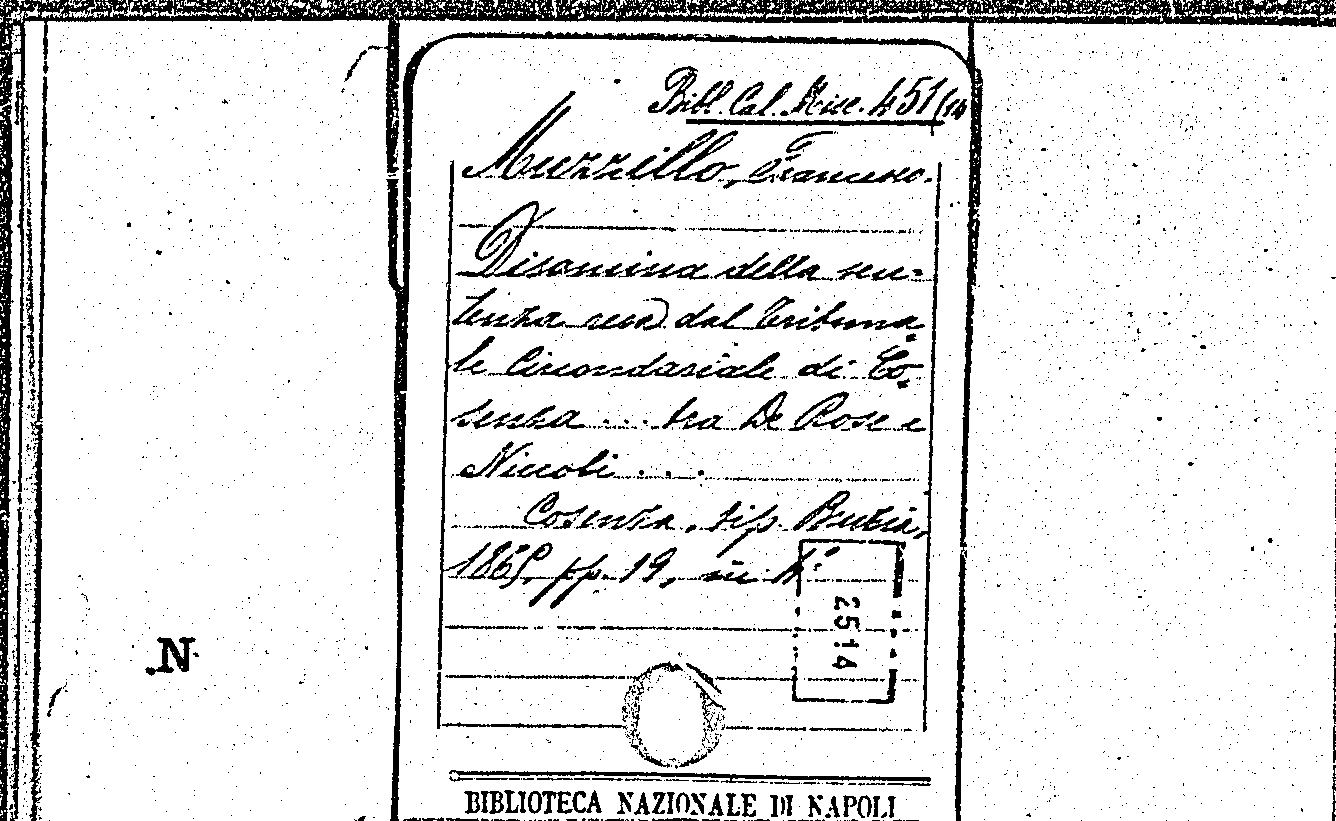 Bibl. Cal. Misc. 451(14
Muzzillo, Francesco.
Disamina della sen-
tenza resa dal Tribuna-
le Circondariale di Co-
senza ... tra De Rose e
Niccoli ...
Cosenza, tip. Bruzia,
1865, pp. 19, in 4.°
2514
.N.
BIBLIOTECA NAZIONALE DI NAPOLI